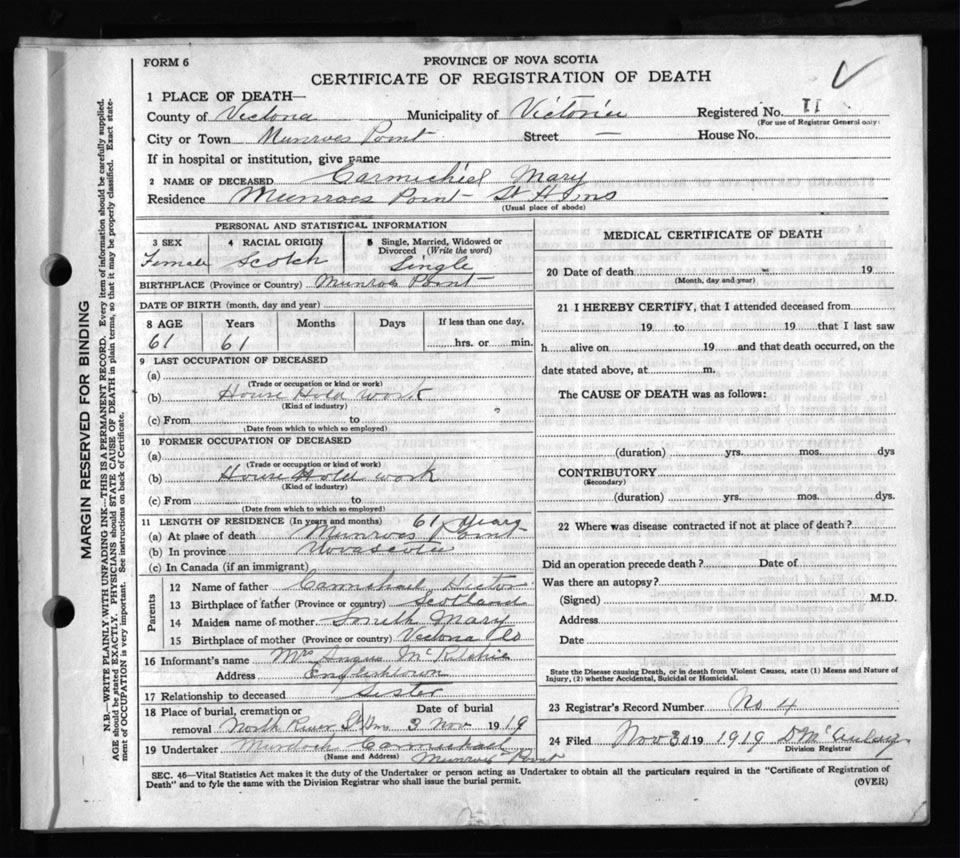 FORM 6
PROVINCE OF NOVA SCOTIA
CERTIFICATE OF REGISTRATION OF DEATH
1 PLACE OF DEATH—
County of Victoria Municipality of Victoria Registered No. II
(For use of Registrar General only)
City or Town Munroes Point Street — House No.
If in hospital or institution, give name
2 NAME OF DECEASED Carmichiel Mary
Residence Munroes Point St Anns
(Usual place of abode)
PERSONAL AND STATISTICAL INFORMATION
3 SEX 4 RACIAL ORIGIN 5 Single, Married, Widowed or Divorced (Write the word)
Female Scotch Single
BIRTHPLACE (Province or Country) Munroes Point
DATE OF BIRTH (month, day and year)
8 AGE Years Months Days If less than one day,
61 61 hrs. or min.
9 LAST OCCUPATION OF DECEASED
(a)
(Trade or occupation or kind or work)
(b) House Hold Work
(Kind of industry)
(c) From to
(Date from which to which so employed)
10 FORMER OCCUPATION OF DECEASED
(a)
(Trade or occupation or kind of work)
(b) House Hold work
(Kind of industry)
(c) From to
(Date from which to which so employed)
11 LENGTH OF RESIDENCE (In years and months) 61 years
(a) At place of death Munroes Point
(b) In province Novascotia
(c) In Canada (if an immigrant)
Parents
12 Name of father Carmichael Hector
13 Birthplace of father (Province or country) Scotland
14 Maiden name of mother Smith Mary
15 Birthplace of mother (Province or country) Victoria Co
16 Informant's name Mrs Angus McRitchie
Address Englishtown
17 Relationship to deceased Sister
18 Place of burial, cremation or Date of burial
removal North River St Ann 3 Nov 1919
19 Undertaker Murdoch Carmichael
(Name and Address) Munroes Point
MEDICAL CERTIFICATE OF DEATH
20 Date of death 19
(Month, day and year)
21 I HEREBY CERTIFY, that I attended deceased from
19 to 19 that I last saw
h alive on 19 and that death occurred, on the
date stated above, at m.
The CAUSE OF DEATH was as follows:
(duration) yrs. mos. dys
CONTRIBUTORY
(Secondary)
(duration) yrs. mos. dys.
22 Where was disease contracted if not at place of death?
Did an operation precede death? Date of
Was there an autopsy?
(Signed) M.D.
Address
Date
State the Disease causing Death, or in death from Violent Causes, state (1) Means and Nature of
Injury, (2) whether Accidental, Suicidal or Homicidal.
23 Registrar's Record Number No 4
24 Filed Nov 30 19 1919 D McAulay
Division Registrar
SEC. 46—Vital Statistics Act makes it the duty of the Undertaker or person acting as Undertaker to obtain all the particulars required in the "Certificate of Registration of
Death" and to fyle the same with the Division Registrar who shall issue the burial permit. (OVER)
MARGIN RESERVED FOR BINDING
N.B.—WRITE PLAINLY WITH UNFADING INK—THIS IS A PERMANENT RECORD. Every item of information should be carefully supplied.
AGE should be stated EXACTLY. PHYSICIANS should STATE CAUSE OF DEATH in plain terms, so that it may be properly classified. Exact state-
ment of OCCUPATION is very important. See instructions on back of Certificate.